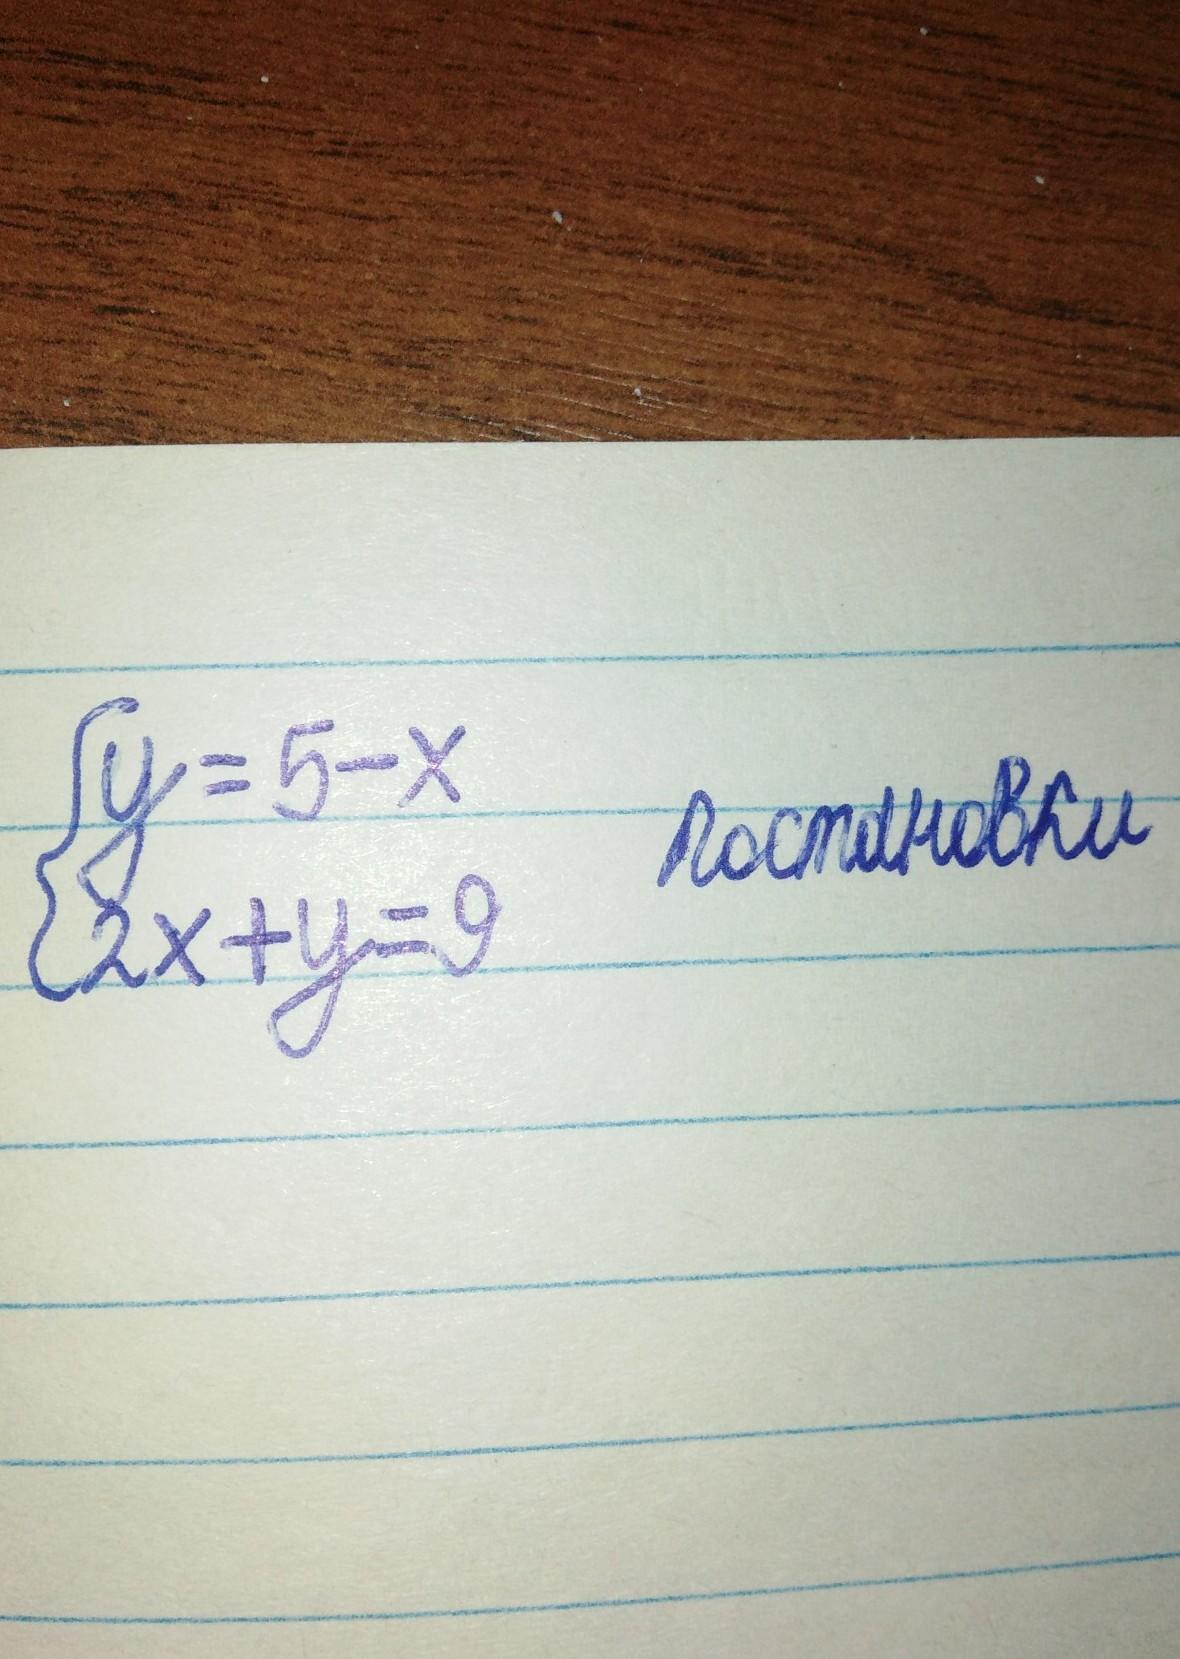 {y=5-x
2x+y=9
постановки